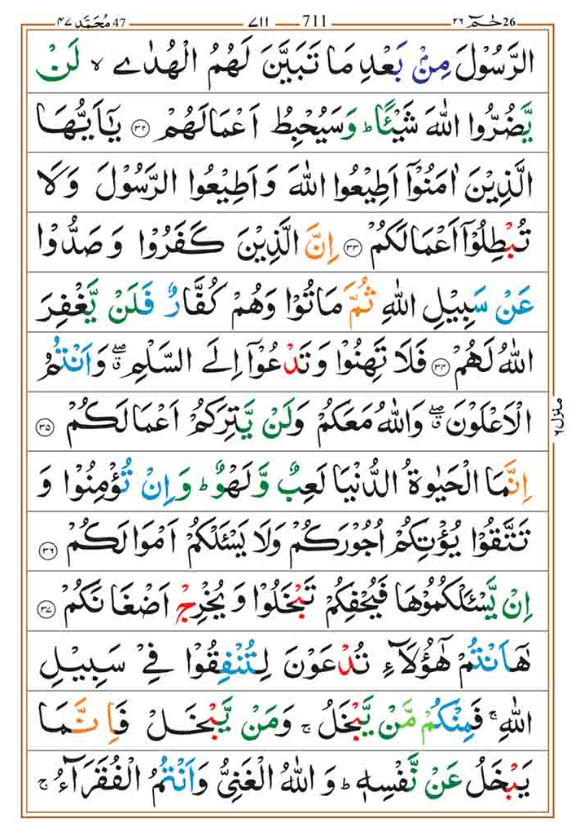 محمد ٤٧ 47 ٧١١ 711 حٰمٓ ٢٦ 26
الرَّسُوْلَ مِنْۢ بَعْدِ مَا تَبَيَّنَ لَهُمُ الْهُدٰى ۙ لَنْ
يَّضُرُّوا اللّٰهَ شَيْـًٔا ؕ وَسَيُحْبِطُ اَعْمَالَهُمْ ﴿۳۲﴾ يٰۤاَيُّهَا
الَّذِيْنَ اٰمَنُوْۤا اَطِيْعُوا اللّٰهَ وَاَطِيْعُوا الرَّسُوْلَ وَلَا
تُبْطِلُوْۤا اَعْمَالَكُمْ ﴿۳۳﴾ اِنَّ الَّذِيْنَ كَفَرُوْا وَصَدُّوْا
عَنْ سَبِيْلِ اللّٰهِ ثُمَّ مَاتُوْا وَهُمْ كُفَّارٌ فَلَنْ يَّغْفِرَ
اللّٰهُ لَهُمْ ﴿۳۴﴾ فَلَا تَهِنُوْا وَتَدْعُوْۤا اِلَى السَّلْمِ ۖۗ وَاَنْتُمُ
الْاَعْلَوْنَ ۖۗ وَاللّٰهُ مَعَكُمْ وَلَنْ يَّتِرَكُمْ اَعْمَالَكُمْ ﴿۳۵﴾
اِنَّمَا الْحَيٰوةُ الدُّنْيَا لَعِبٌ وَّلَهْوٌ ؕ وَاِنْ تُؤْمِنُوْا وَ
تَتَّقُوْا يُؤْتِكُمْ اُجُوْرَكُمْ وَلَا يَسْـَٔلْكُمْ اَمْوَالَكُمْ ﴿۳۶﴾
اِنْ يَّسْـَٔلْكُمُوْهَا فَيُحْفِكُمْ تَبْخَلُوْا وَيُخْرِجْ اَضْغَانَكُمْ ﴿۳۷﴾
هٰۤاَنْتُمْ هٰۤؤُلَآءِ تُدْعَوْنَ لِتُنْفِقُوْا فِيْ سَبِيْلِ
اللّٰهِ ۚ فَمِنْكُمْ مَّنْ يَّبْخَلُ ۚ وَمَنْ يَّبْخَلْ فَاِنَّمَا
يَبْخَلُ عَنْ نَّفْسِهٖ ؕ وَاللّٰهُ الْغَنِيُّ وَاَنْتُمُ الْفُقَرَآءُ ۚ
منزل ٦